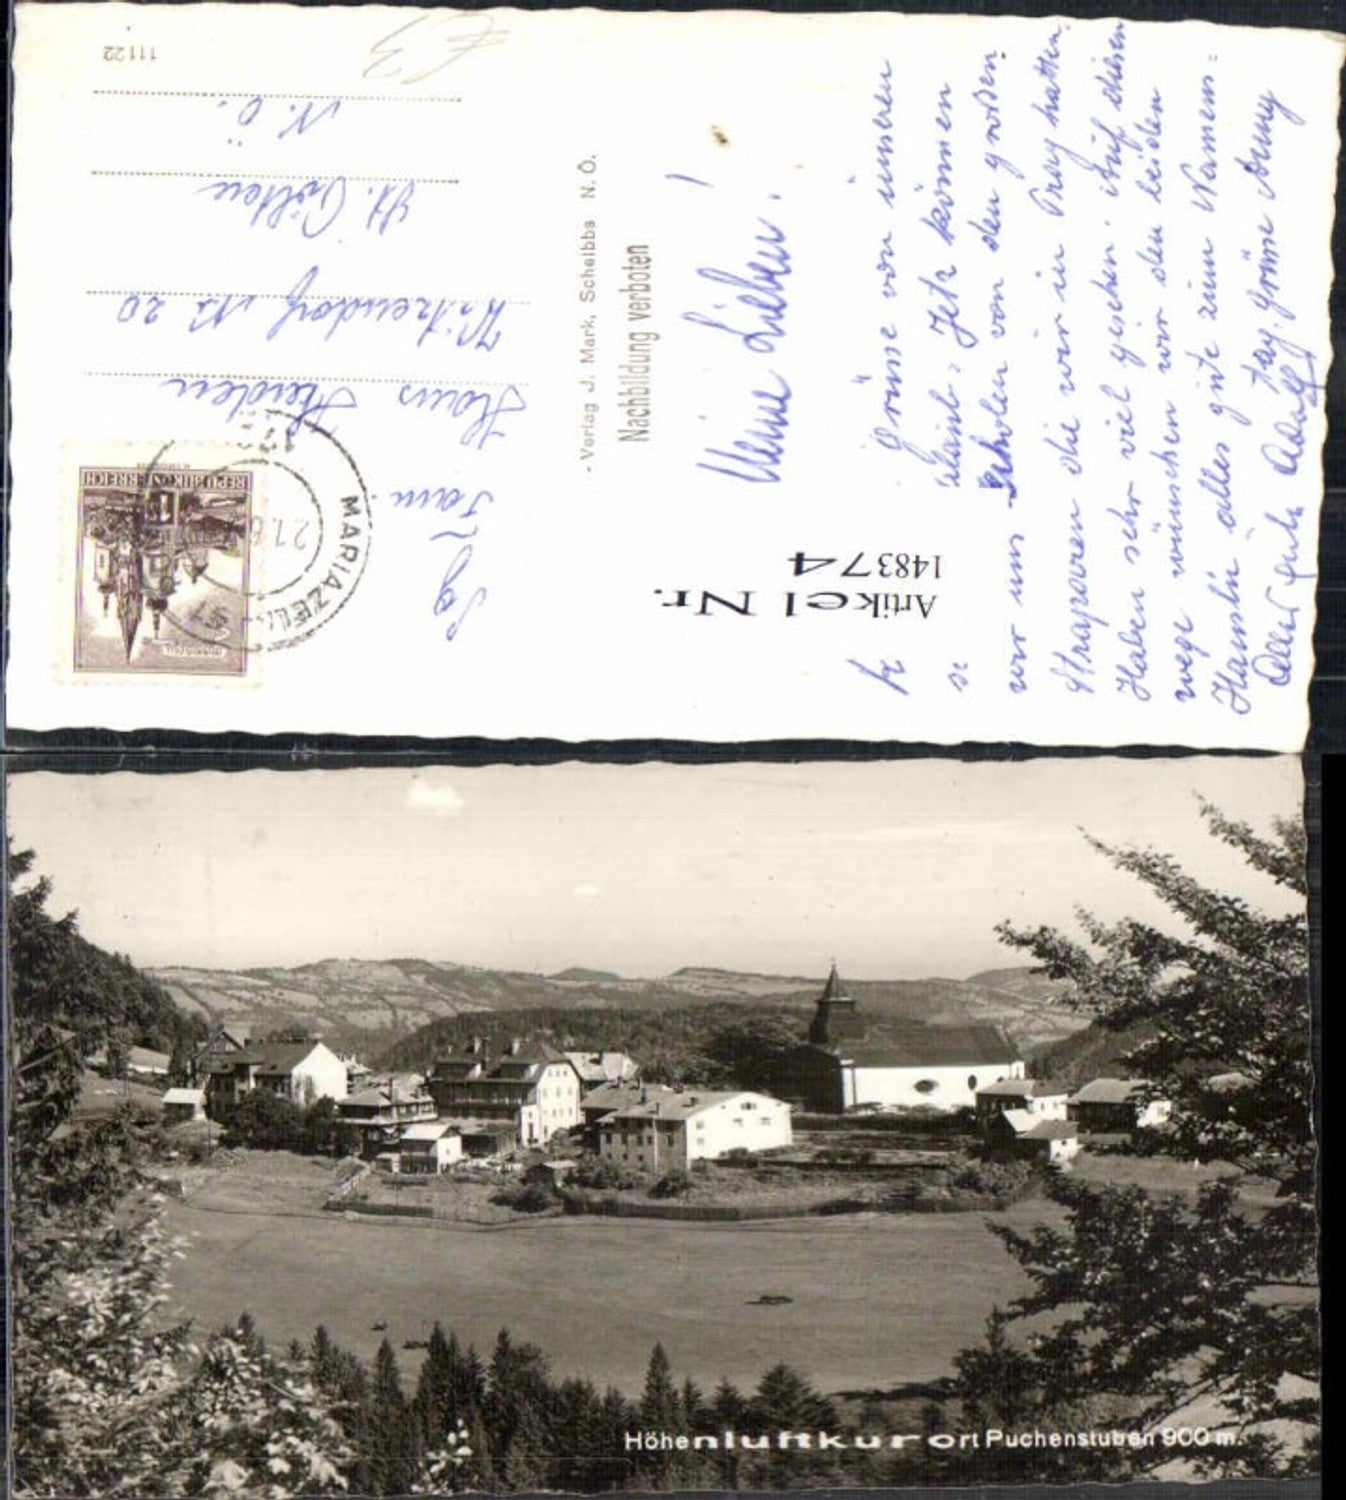 Meine Lieben!
Grüsse von unseren
Urlaub. Jetz können
wir uns Erholen von den großen
Strapazen die wir in Prag hatten,
Haben sehr viel gesehen. Auf diesen
wege wünschen wir den beiden
Hansln alles gute zum Namens=
tag. Grüsse Anny
Adolf
Nachbildung verboten
- Verlag J. Mark, Scheibbs N. Ö.
Fam.
Hans
Nr 20
St. Pölten
N. Ö.
11122
REPUBLIK ÖSTERREICH
MARIAZELL
Artikel Nr.
148374
Höhenluftkurort Puchenstuben 900 m.